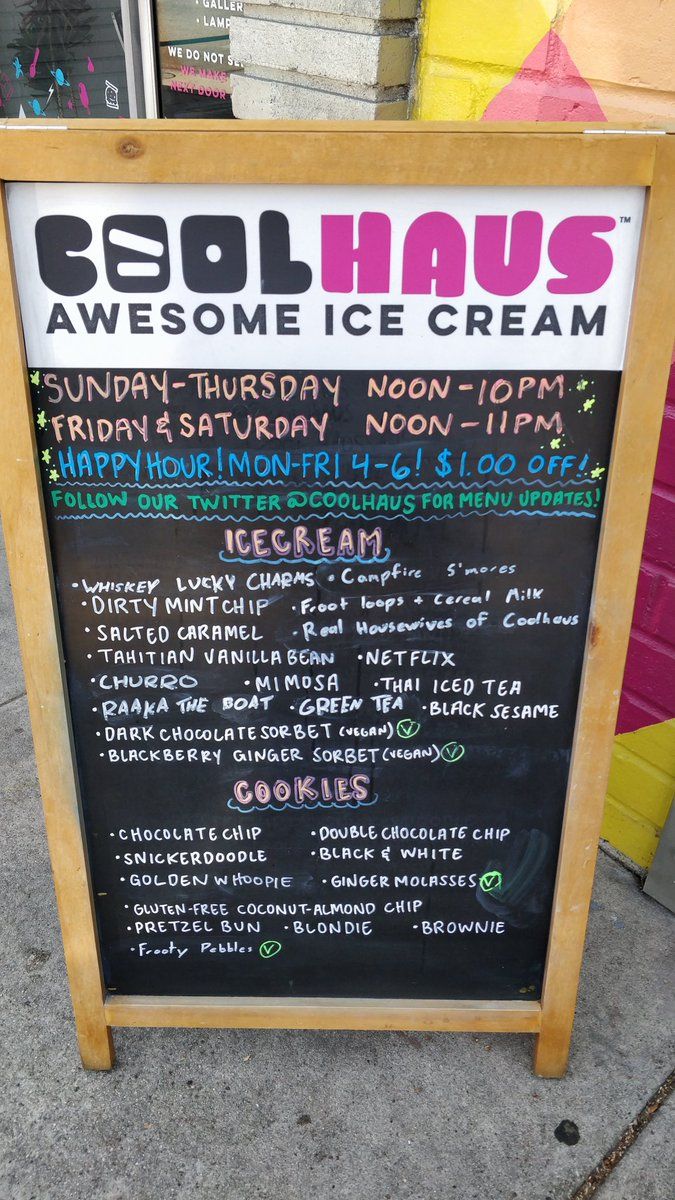 • GALLER
• LAMP
WE DO NOT SE
WE MAKE
NEXT DOOR
COOLHAUS™
AWESOME ICE CREAM
SUNDAY-THURSDAY NOON-10PM
FRIDAY & SATURDAY NOON-11PM
HAPPY HOUR! MON-FRI 4-6! $1.00 OFF!
FOLLOW OUR TWITTER @COOLHAUS FOR MENU UPDATES!
ICECREAM
• WHISKEY LUCKY CHARMS • Campfire S'mores
• DIRTY MINT CHIP • Froot loops + Cereal Milk
• SALTED CARAMEL • Real Housewives of Coolhaus
• TAHITIAN VANILLA BEAN • NETFLIX
• CHURRO • MIMOSA • THAI ICED TEA
• RAAKA THE BOAT • GREEN TEA • BLACK SESAME
• DARK CHOCOLATE SORBET (VEGAN)
• BLACKBERRY GINGER SORBET (VEGAN)
COOKIES
• CHOCOLATE CHIP • DOUBLE CHOCOLATE CHIP
• SNICKERDOODLE • BLACK & WHITE
• GOLDEN WHOOPIE • GINGER MOLASSES
• GLUTEN-FREE COCONUT-ALMOND CHIP
• PRETZEL BUN • BLONDIE • BROWNIE
• Frooty Pebbles